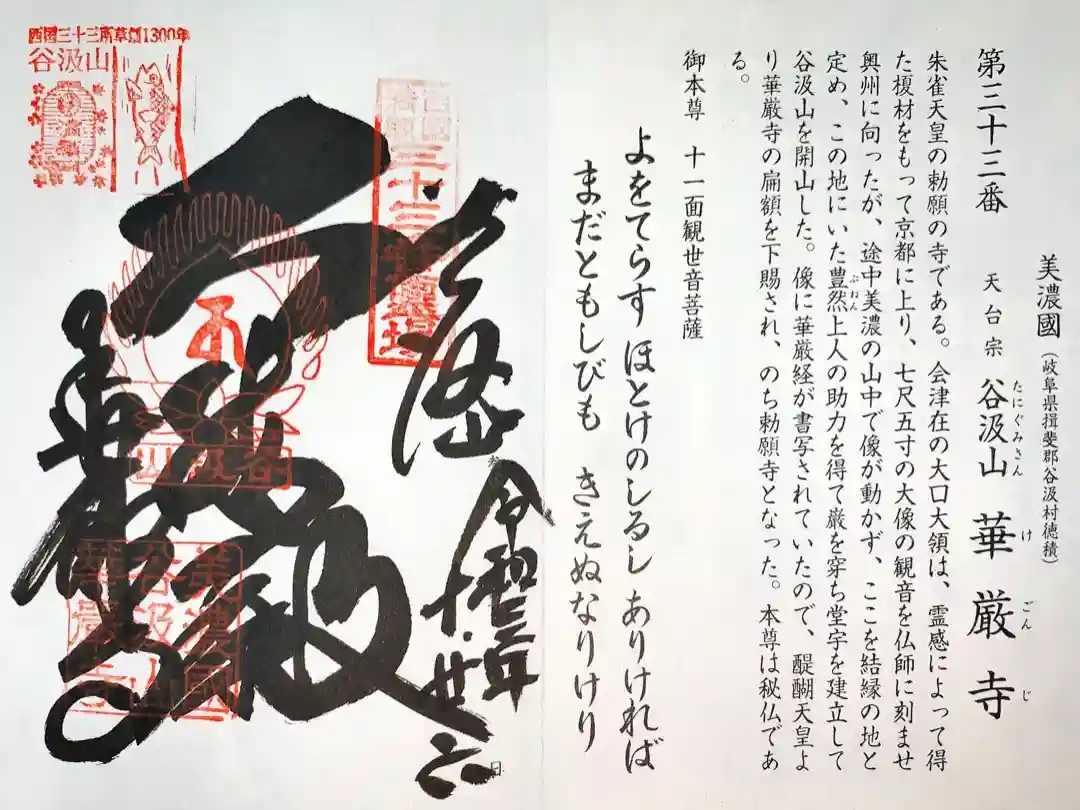 美濃國(岐阜県揖斐郡谷汲村徳積)
第三十三番 天台宗 谷汲山 華厳寺
たにぐみさん けごんじ
朱雀天皇の勅願の寺である。会津在の大口大領は、霊感によって得
た榎材をもって京都に上り、七尺五寸の大像の観音を仏師に刻ませ
奥州に向ったが、途中美濃の山中で像が動かず、ここを結縁の地と
定め、この地にいた豊然上人の助力を得て厳を穿ち堂宇を建立して
ぶねん
谷汲山を開山した。像に華厳経が書写されていたので、醍醐天皇よ
り華厳寺の扁額を下賜され、のち勅願寺となった。本尊は秘仏であ
る。
御本尊 十一面観世音菩薩
よをてらす ほとけのしるし ありければ
まだともしびも きえぬなりけり
西国三十三所草創1300年
谷汲山
三十三番
令和三年
十一、廿六日
谷汲山
美濃國
谷汲山
華厳寺